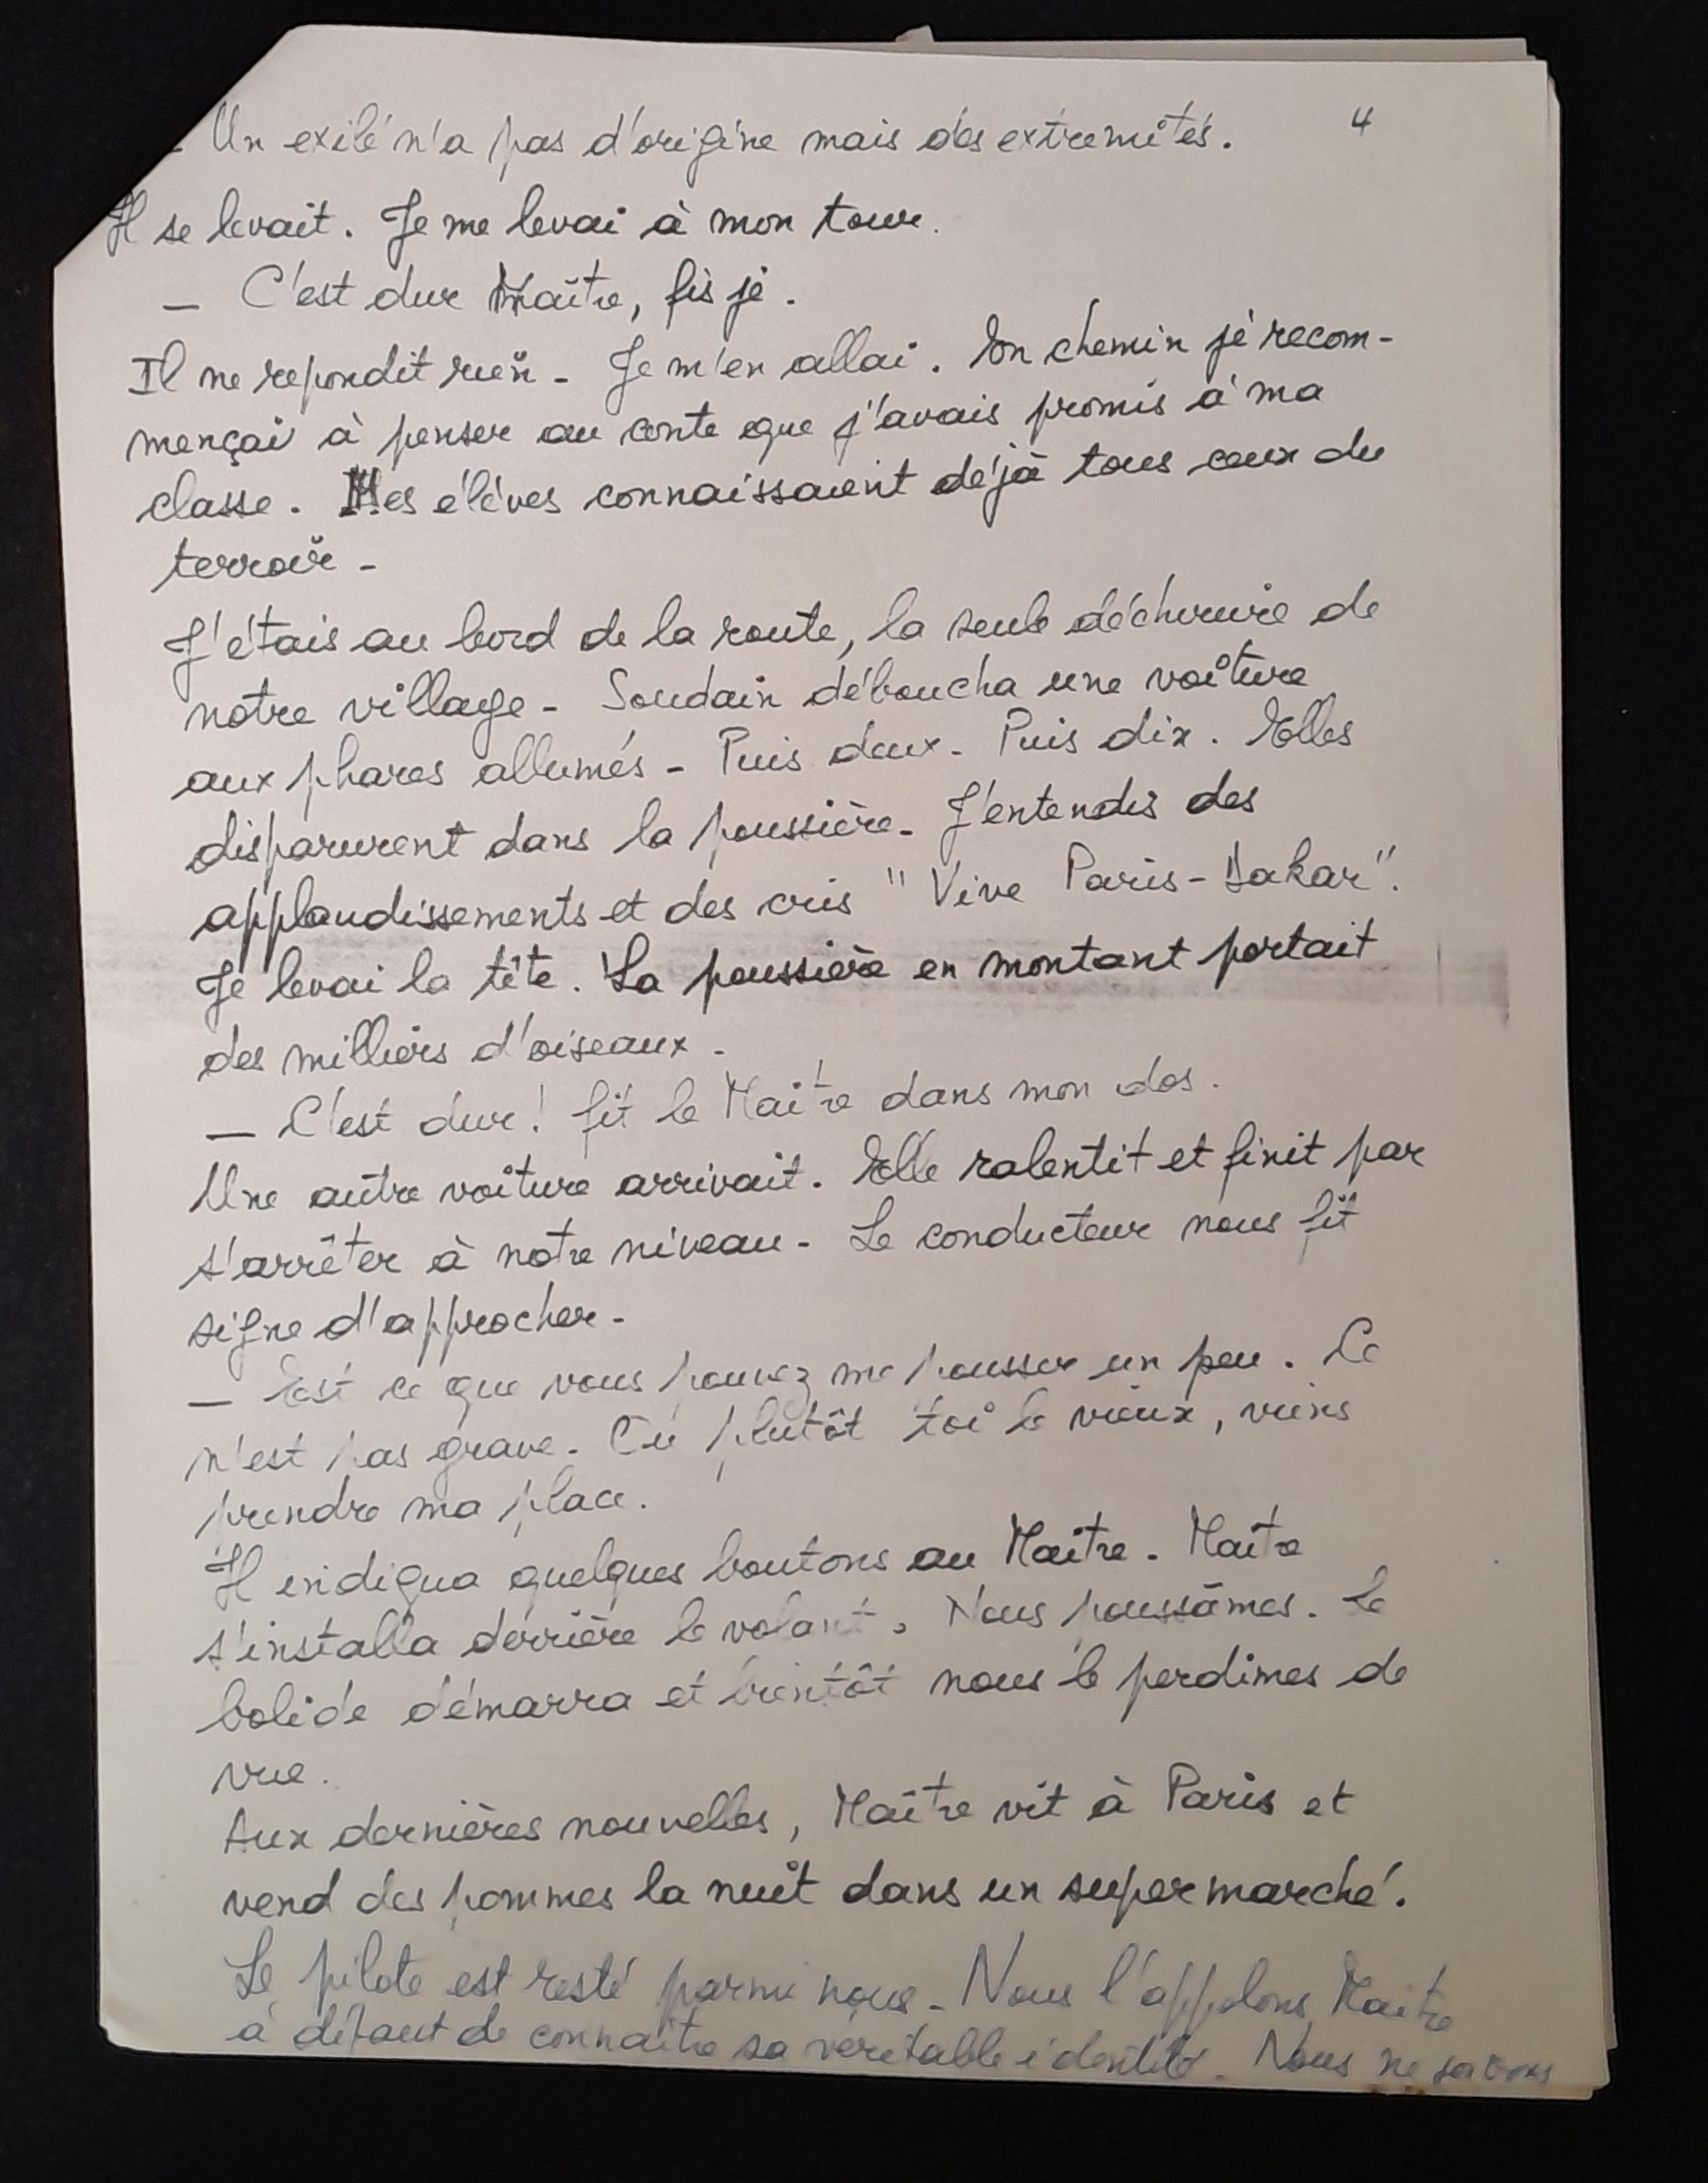 4
- Un exilé n'a pas d'origine mais des extremités.
Il se levait. Je me levai à mon tour.
— C'est dur Maître, fis je.
Il ne repondit rien - Je m'en allai. En chemin je recom-
mençai à penser au conte que j'avais promis à ma
classe. Mes élèves connaissaient déjà tous ceux du
terroir -
J'étais au bord de la route, la seule déchirure de
notre village - Soudain déboucha une voiture
aux phares allumés - Puis deux - Puis dix. Elles
disparurent dans la poussière - J'entendis des
applaudissements et des cris "Vive Paris-Dakar".
Je levai la tête. La poussière en montant portait
des milliers d'oiseaux -
— C'est dur! fit le Maître dans mon dos.
Une autre voiture arrivait. Elle ralentit et finit par
s'arrêter à notre niveau - Le conducteur nous fit
signe d'approcher -
— Est ce que vous pouvez me pousser un peu. Ce
n'est pas grave - Ou plutôt toi le vieux, viens
prendre ma place.
Il indiqua quelques boutons au Maître. Maître
s'installa derrière le volant. Nous poussâmes. Le
bolide démarra et bientôt nous le perdîmes de
vue.
Aux dernières nouvelles, Maître vit à Paris et
vend des pommes la nuit dans un supermarché.
Le pilote est resté parmi nous - Nous l'appelons Maître
à défaut de connaître sa véritable identité. Nous ne savons